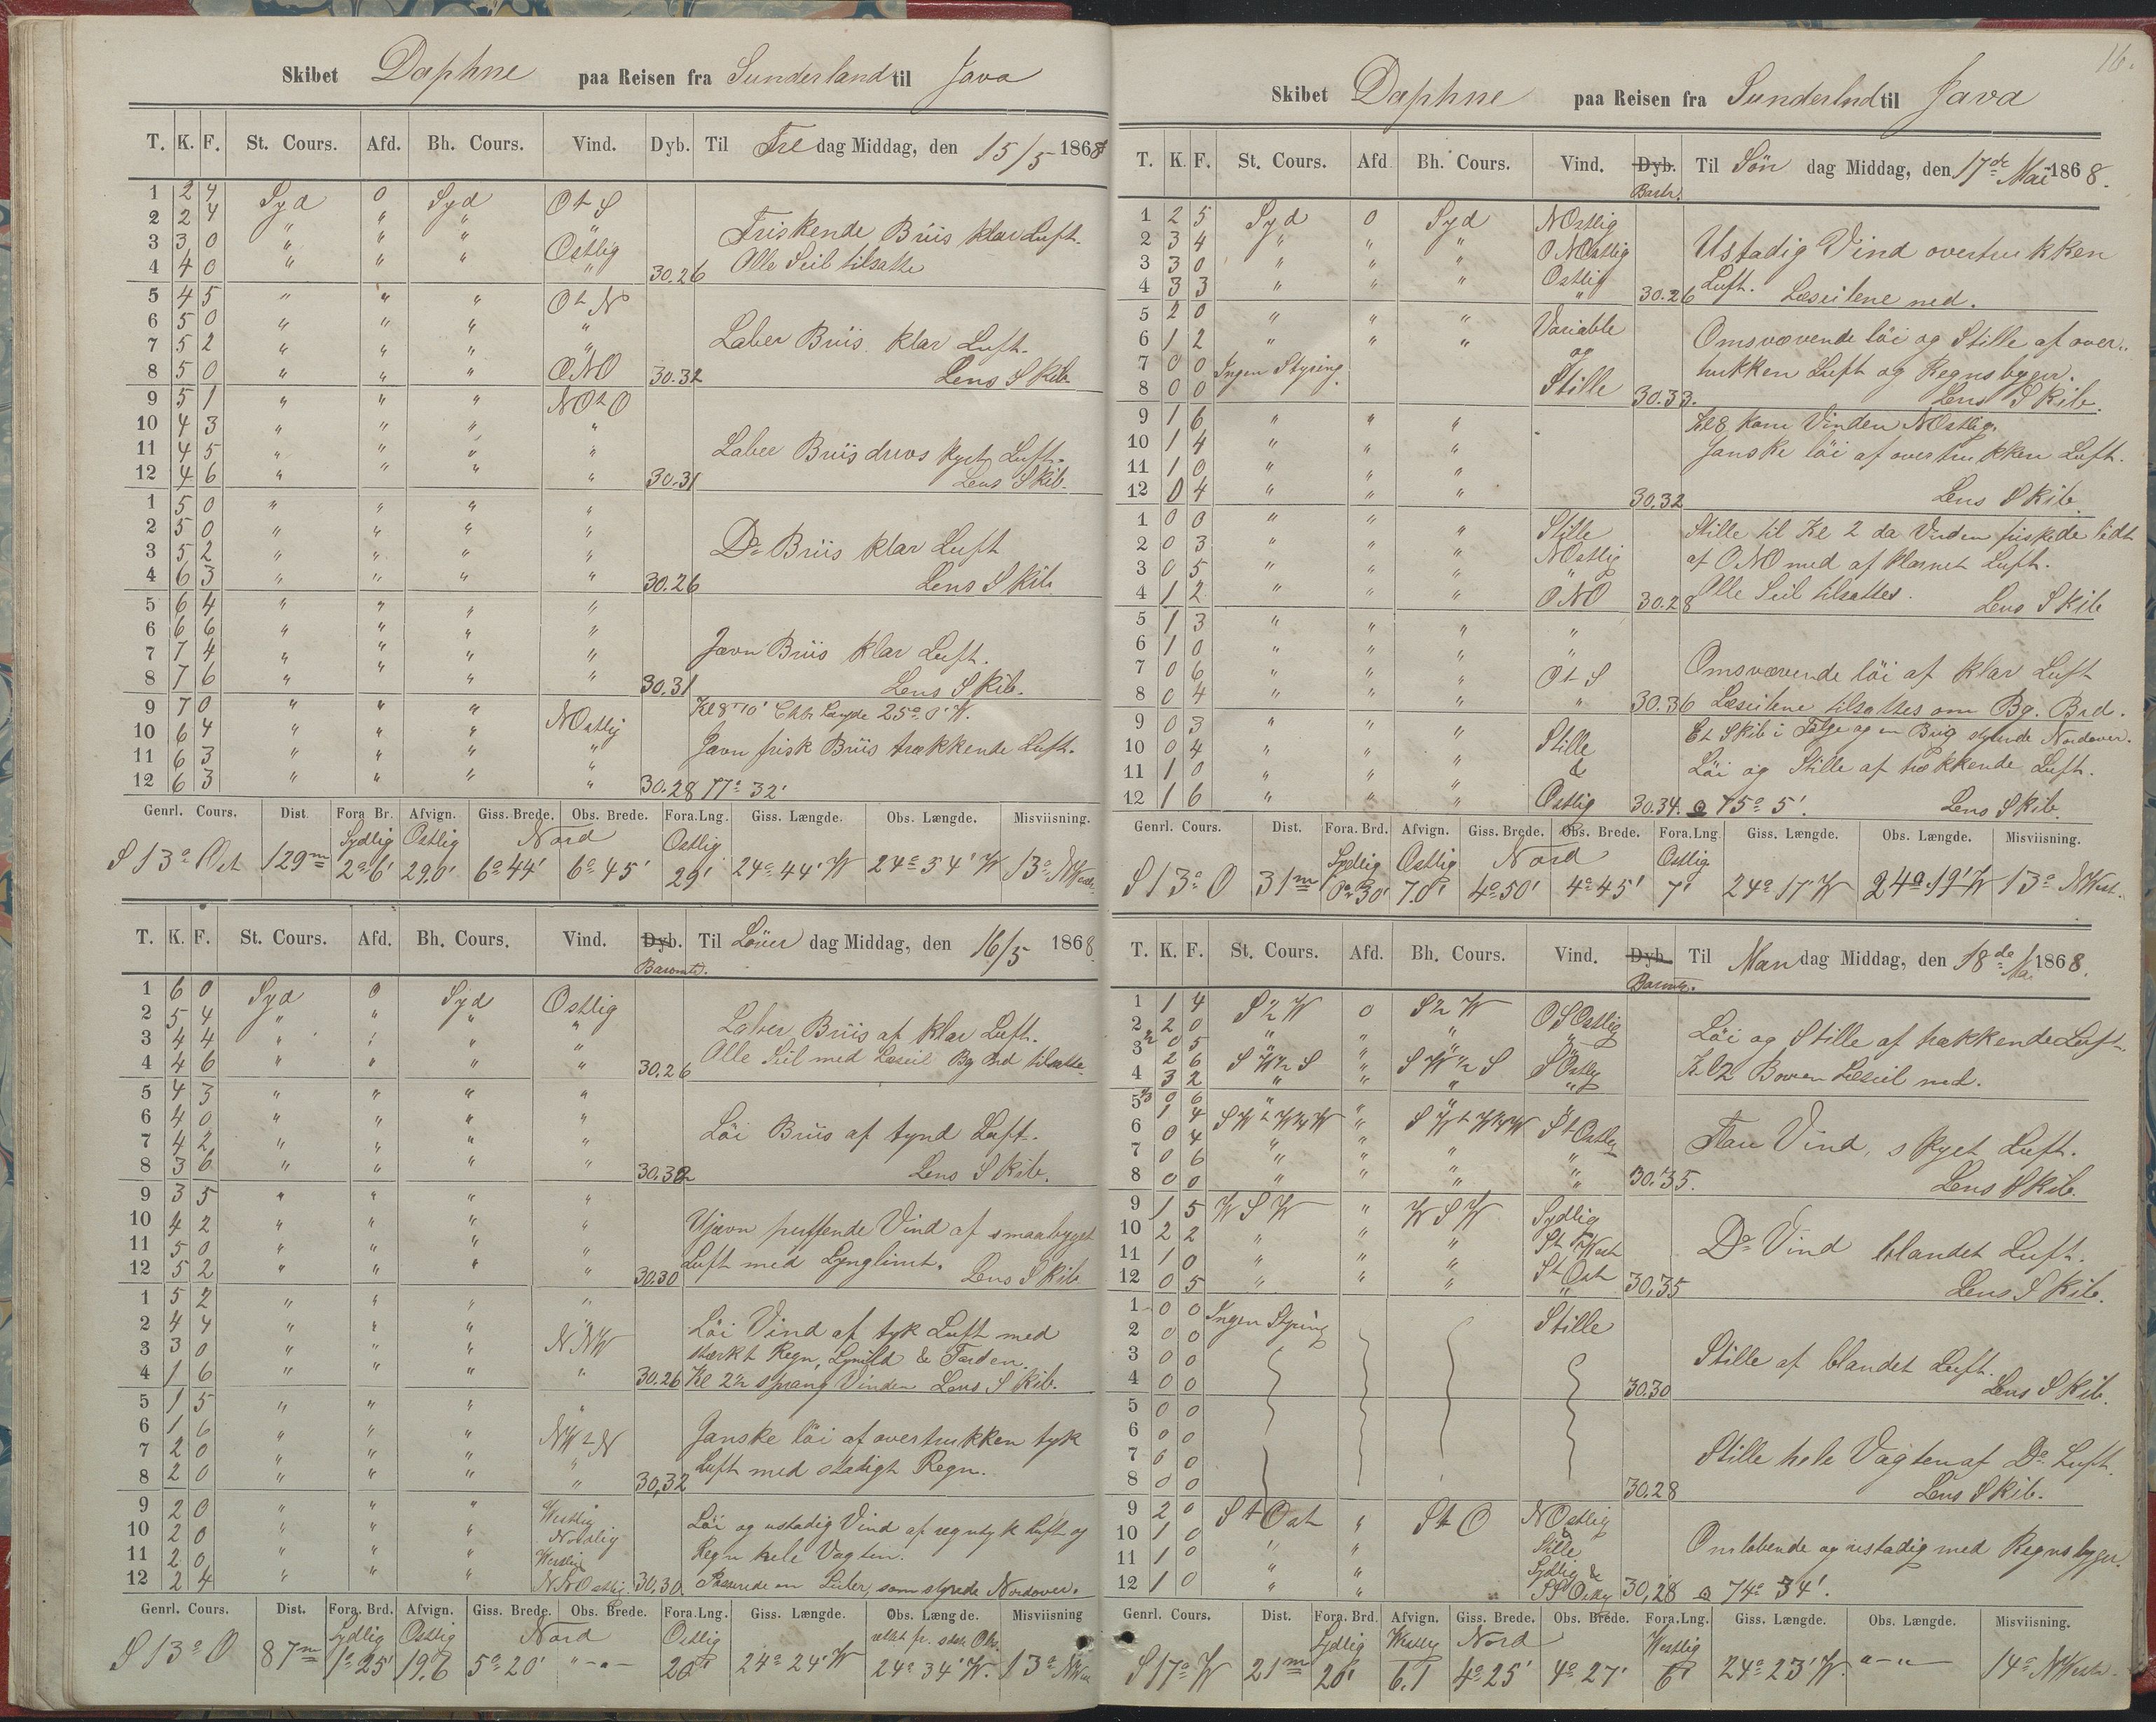 Skibet Daphne paa Reisen fra Sunderland til Java
T. K. F. St. Cours. Afd. Bh. Cours. Vind. Dyb. Til Fredag Middag, den 15/5 1868
1 2 4 Syd 0 Syd Ot S
2 2 4 " " " " Friskende Briis klar Luft.
3 3 0 " " " Ostlig
4 4 0 " " " " 30.26 Alle Seil tilsatte
5 4 5 " " " Ot N
6 5 0 " " " "
7 5 2 " " " " Laber Briis klar Luft.
8 5 0 " " " ONO 30.32 Lens Skib.
9 5 1 " " " NOtO
10 4 3 " " " "
11 4 5 " " " " Laber Briis Luft.
12 4 6 " " " " 30.31 Lens Skib.
1 5 0 " " " "
2 5 0 " " " "
3 5 2 " " " " Do Briis klar Luft
4 6 3 " " " " 30.26 Lens Skib
5 6 4 " " " "
6 6 6 " " " "
7 7 4 " " " " Jævn Briis klar Luft.
8 7 6 " " " " 30.31 Lens Skib.
9 7 0 " " " NOstlig Længde 25° 0' W.
10 6 4 " " " Jævn frisk Briis trækkende Luft.
11 6 3 " " " "
12 6 3 " " " " 30.28 77° 32'
Genrl. Cours. Dist. Fora Br. Afvign. Giss. Brede. Obs. Brede. Fora.Lng. Giss. Længde. Obs. Længde. Misviisning.
Sydlig Ostlig Nord Ostlig
S 13° Ost 129m 2° 6' 29,0' 6° 44' 6° 45' 29' 24° 44' W 24° 54' W 13° NWest.
T. K. F. St. Cours. Afd. Bh. Cours. Vind. Dyb. Til Löver dag Middag, den 16/5 1868
Baromtr.
1 6 0 Syd 0 Syd Ostlig
2 5 4 " " " " Laber Briis af klar Luft.
3 4 4 " " " "
4 4 6 " " " " 30.26 Alle Seil med Læseil Bg Brd tilsatte
5 4 3 " " " "
6 4 0 " " " "
7 4 2 " " " " Löi Briis af tynd Luft.
8 3 6 " " " " 30.32 Lens Skib.
9 3 5 " " " "
10 4 2 " " " " Ujævn puffende Vind af smaabyget
11 5 0 " " " "
12 5 2 " " " " 30.30 Luft med Lynglimt. Lens Skib
1 5 2 " " " "
2 4 4 " " " " Löi Vind af tyk Luft med
3 3 0 " " " NNW stærkt Regn, Lynild & Torden.
4 1 6 " " " " 30.26 Kl 2½ sprang Vinden Lens Skib.
5 1 5 " " " "
6 1 6 " " " NWtN Ganske löi af overtrukken tyk
7 2 0 " " " "
8 2 0 " " " " 30,32 Luft med stadigt Regn.
9 2 0 " " " Westlig
10 2 0 " " " Nordlig Löi og ustadig Vind af regntyk Luft og
11 2 0 " " " Westlig Regn hele Vagten.
12 2 4 " " " NNOstlig 30,30 Passerede en som styrede Nordover.
Genrl. Cours. Dist. Fora. Brd. Afvign. Giss. Brede. Obs. Brede. Fora.Lng. Giss. Længde. Obs. Længde. Misviisning
Sydlig Ostlig Nord Ostlig
S 13° O 87m 1° 25' 19,6 5° 20' "-"- 20' 24° 24' W 24° 34' W. 13° NWest
16.
Skibet Daphne paa Reisen fra Sunderlnd til Java
T. K. F. St. Cours. Afd Bh. Cours. Vind. Dyb. Til Sön dag Middag, den 17de Mai 1868.
Bartr.
1 2 5 Syd 0 Syd NOstlig
2 3 4 " " " ONOstlig Ustadig Vind overtrukken
3 3 0 " " " Ostlig
4 3 3 " " " " 30.26 Luft. Læseilene ned.
5 2 0 " " " Variable
6 1 2 " " " og Omsvævende löi og Stille af over..
7 0 0 Ingen Styring. trukken Luft og Regnsbyger.
8 0 0 Stille 30.33. Lens Skib.
9 1 6 " " " Kl 8 kom Vinden NOstlig.
10 1 4 " " " Ganske löi af overtrukken Luft.
11 1 0 " " "
12 0 4 " " " 30.32 Lens Skib
1 0 0 " " " Stille Stille til Kl 2 da Vinden friskede lidt
2 0 3 " " " NOstlig
3 0 5 " " " " af ONO med af klarnet Luft.
4 1 2 " " " ONO 30.28 Alle Seil tilsattes. Lens Skib
5 1 3 " " " "
6 1 0 " " " "
7 0 6 " " " Ot S Omsvævende löi af klar Luft
8 0 4 " " " " 30.36 Læseilene tilsattes om Bg. Brd.
9 0 3 " " " Et Skib i Fölge og en Brig styrende Nordover.
10 0 4 " " " Stille
11 1 0 " " " & Löi og Stille af trækkende Luft.
12 1 6 " " " Ostlig 30.34. 75° 5'. Lens Skib.
Genrl. Cours. Dist. Fora. Brd. Afvign. Giss. Brede. Obs. Brede. Fora.Lng Giss. Længde. Obs. Længde. Misviisning.
Sydlig Ostlig Nord Ostlig
S 13° O 31m 0° 30' 7.0' 4° 50' 4° 45' 7' 24° 17' W 24° 19' W 13° NWest.
T. K. F. St. Cours. Afd. Bh. Cours. Vind. Dyb. Til Man dag Middag, den 18de Mai 1868.
Baromtr.
1 1 4 S½W 0 S½W OSOstlig
2 2 0 " " " " Löi og Stille af trækkende Luft.
3 ½ 0 5 " " "
2 6 SW½S " SW½S SOstlig
4 3 2 " " " " Kl 2 Boven Læseil ned.
5 0 6 " " "
1 4 " StOstlig
6 0 4 " " " Flau Vind, skyet Luft.
7 0 6 " " " "
8 0 0 " " " " 30.35. Lens Skib.
9 1 5 WSW " WSW Sydlig
10 2 2 " " " St West Do Vind blandet Luft.
11 1 0 " " " St Ost
12 0 5 " " " " 30,35 Lens Skib.
1 0 0 Ingen Styring Stille
2 0 0
3 0 0 Stille af blandet Luft.
4 0 0 30.30 Lens Skib.
5 0 0
6 0 0
7 0 0 Stille hele Vagten af Do Luft.
8 0 0 30.28 Lens Skib.
9 2 0 St Ost " St O NOstlig
10 1 0 " " &
11 1 0 " " Stille Omlöbende og ustadig med Regnsbyger.
12 1 0 " " Sydlig & SSOstlig 30,28 74° 34'.
Genrl. Cours. Dist. Fora. Brd. Afvign. Giss. Brede. Obs. Brede. Fora.Lng. Giss. Længde. Obs. Længde. Misviisning.
Sydlig Westlig Nord Westlig
S 17° W 21m 20' 6.1 4° 25' 4° 27' 6' 24° 23' W. "-"- 14° NWestr.